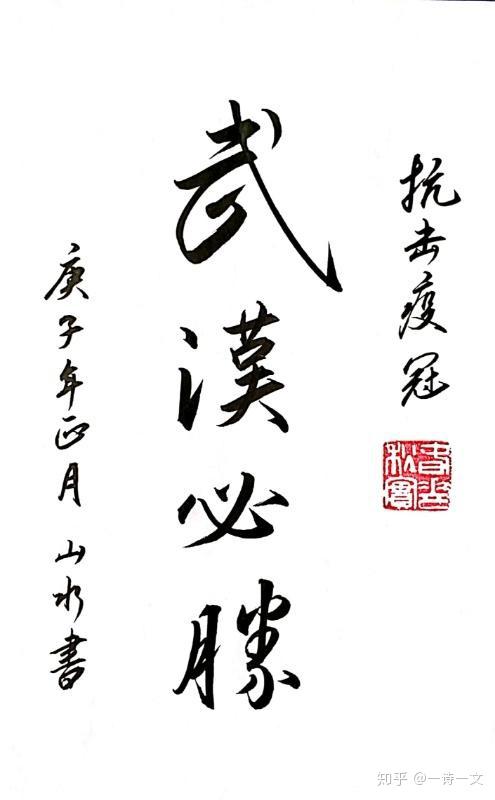 抗击疫冠
春華
秋實
武漢必勝
庚子年正月 山水書
知乎 @一诗一文